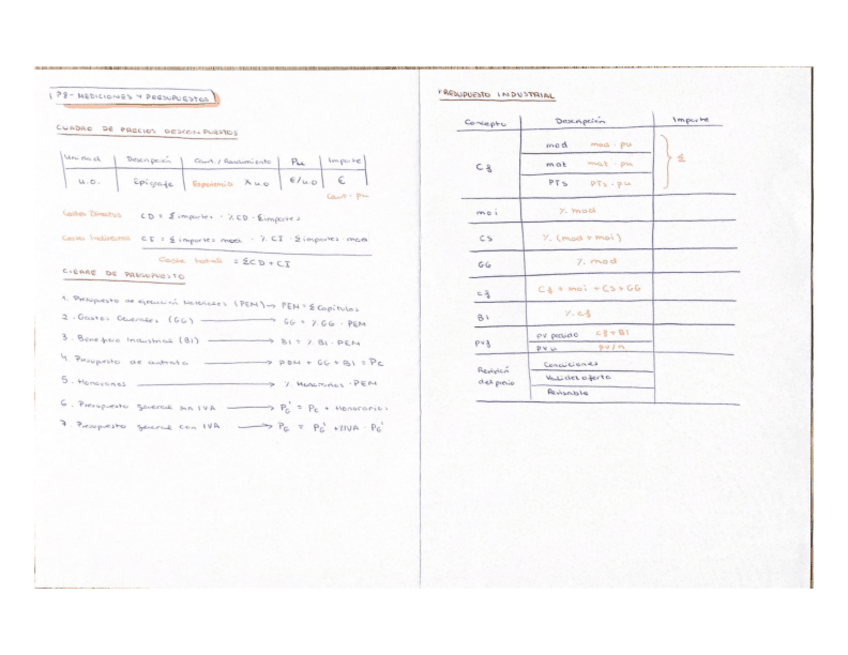 P8 - MEDICIONES Y PRESUPUESTOS
CUADRO DE PRECIOS DESCOMPUESTOS
Unidad Descripción Cant./Rendimiento Pu Importe
u.o. Epígrafe Experiencia x u.o €/u.o €
Cant · pu
Costes Directos CD = Σ importes · % CD · Σ importes
Costes Indirectos CI = Σ importes mod · % CI · Σ importes mod
Coste total = ΣCD + CI
CIERRE DE PRESUPUESTO
1. Presupuesto de ejecución Materiales (PEM) → PEM = Σ Capítulos
2. Gastos Generales (GG) → GG = % GG · PEM
3. Beneficio Industrial (BI) → BI = % BI · PEM
4. Presupuesto de contrata → PEM + GG + BI = Pc
5. Honorarios → % Honorarios · PEM
6. Presupuesto general sin IVA → PG' = Pc + Honorarios
7. Presupuesto general con IVA → PG = PG' + % IVA · PG'
PRESUPUESTO INDUSTRIAL
Concepto Descripción Importe
Cf
mod moa · pu
mat mat · pu
PTs PTs · pu
Σ
moi % mod
CS % (mod + moi)
GG % mod
cf Cf + moi + CS + GG
BI % cf
pvf
pv pedido cf + BI
pvu pv/n
Revisión del precio
Condiciones
Validez oferta
Revisable